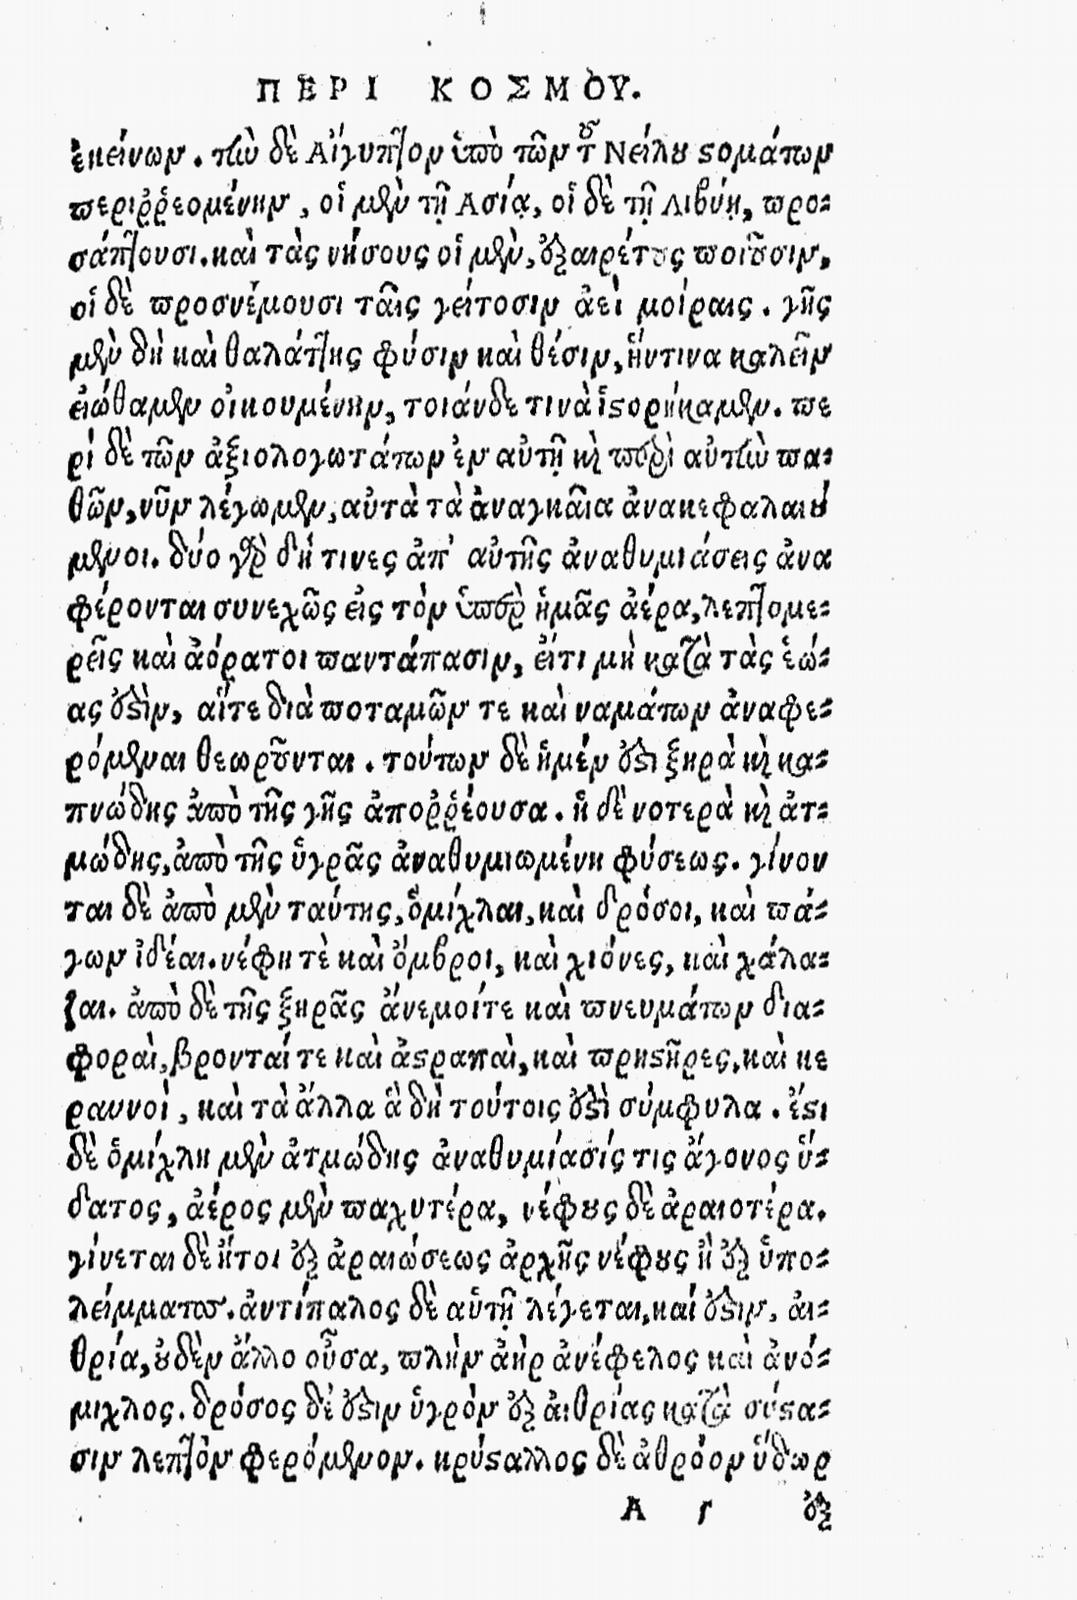 ΠΕΡΙ ΚΟΣΜΟΥ.
ἐκείνων. τὴν δὲ Αἴγυπτον ὑπὸ τῶν τοῦ Νείλου στομάτων
περιῤῥεομένην, οἱ μὲν τῇ Ασίᾳ, οἱ δὲ τῇ Λιβύῃ, προ-
σάπτουσι. καὶ τὰς νήσους οἱ μὲν, ἐξαιρέτους ποιοῦσιν,
οἱ δὲ προσνέμουσι ταῖς γείτοσιν ἀεὶ μοίραις. γῆς
μὲν δὴ καὶ θαλάττης φύσιν καὶ θέσιν, ἥντινα καλεῖν
εἰώθαμεν οἰκουμένην, τοιάνδε τινὰ ἱστορήκαμεν. πε
ρὶ δὲ τῶν ἀξιολογωτάτων ἐν αὐτῇ καὶ περὶ αὐτὴν πα-
θῶν, νῦν λέγωμεν, αὐτὰ τὰ ἀναγκαῖα ἀνακεφαλαιού
μενοι. δύο γὰρ δή τινες ἀπ' αὐτῆς ἀναθυμιάσεις ἀνα
φέρονται συνεχῶς εἰς τὸν ὑπὲρ ἡμᾶς ἀέρα, λεπτομε-
ρεῖς καὶ ἀόρατοι παντάπασιν, εἴτι μὴ κατὰ τὰς ἑώ-
ας ἐστὶν, αἵτε διὰ ποταμῶν τε καὶ ναμάτων ἀναφε-
ρόμεναι θεωροῦνται. τούτων δὲ ἡμέν ἐστι ξηρὰ καὶ κα-
πνώδης ἀπὸ τῆς γῆς ἀποῤῥέουσα. ἡ δὲ νοτερὰ καὶ ἀτ-
μώδης, ἀπὸ τῆς ὑγρᾶς ἀναθυμιωμένη φύσεως. γίνον
ται δὲ ἀπὸ μὲν ταύτης, ὁμίχλαι, καὶ δρόσοι, καὶ πά-
γων ἰδέαι. νέφη τὲ καὶ ὄμβροι, καὶ χιόνες, καὶ χάλα-
ζαι. ἀπὸ δὲ τῆς ξηρᾶς ἄνεμοίτε καὶ πνευμάτων δια-
φοραὶ, βρονταί τε καὶ ἀστραπαὶ, καὶ πρηστῆρες, καὶ κε
ραυνοὶ, καὶ τὰ ἄλλα ἃ δὴ τούτοις ἐστὶ σύμφυλα. ἔστι
δὲ ὁμίχλη μὲν ἀτμώδης ἀναθυμίασίς τις ἄγονος ὕ-
δατος, ἀέρος μὲν παχυτέρα, νέφους δὲ ἀραιοτέρα.
γίνεται δὲ ἤτοι ἐξ ἀραιώσεως ἀρχῆς νέφους ἢ ἐξ ὑπο-
λείμματος. ἀντίπαλος δὲ αὑτῇ λέγεται, καί ἐστιν, αἰ-
θρία, οὐδὲν ἄλλο οὖσα, πλὴν ἀὴρ ἀνέφελος καὶ ἀνό-
μιχλος. δρόσος δέ ἐστιν ὑγρὸν ἐξ αἰθρίας κατὰ σύστα-
σιν λεπτὸν φερόμενον. κρύσταλλος δὲ ἀθρόον ὕδωρ
Α ϛ ἐξ